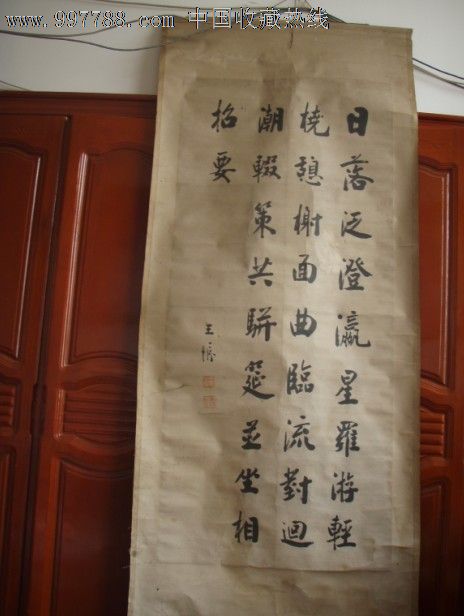 www.997788.com 中国收藏热线
日落泛澄瀛星羅游輕
橈憩榭面曲臨流對迴
潮輟策共駢筵並坐相
招要
王